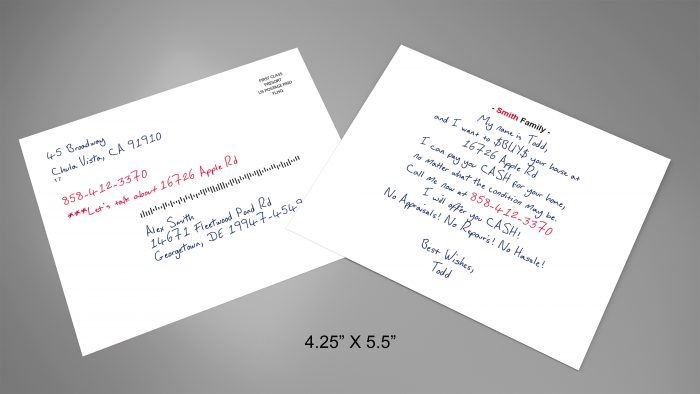 FIRST CLASS
PRESORT
US POSTAGE PAID
FLNG
45 Broadway
Chula Vista, CA 91910
858-412-3370
***Let's talk about 16726 Apple Rd
Alex Smith
14671 Fleetwood Pond Rd
Georgetown, DE 19947-4549
- Smith Family -
My name is Todd,
and I want to $BUY$ your house at
16726 Apple Rd
I can pay you CASH for your home,
no matter what the condition may be.
Call me now at 858-412-3370
I will offer you CASH!
No Appraisals! No Repairs! No Hassle!
Best Wishes,
Todd
4.25” X 5.5”